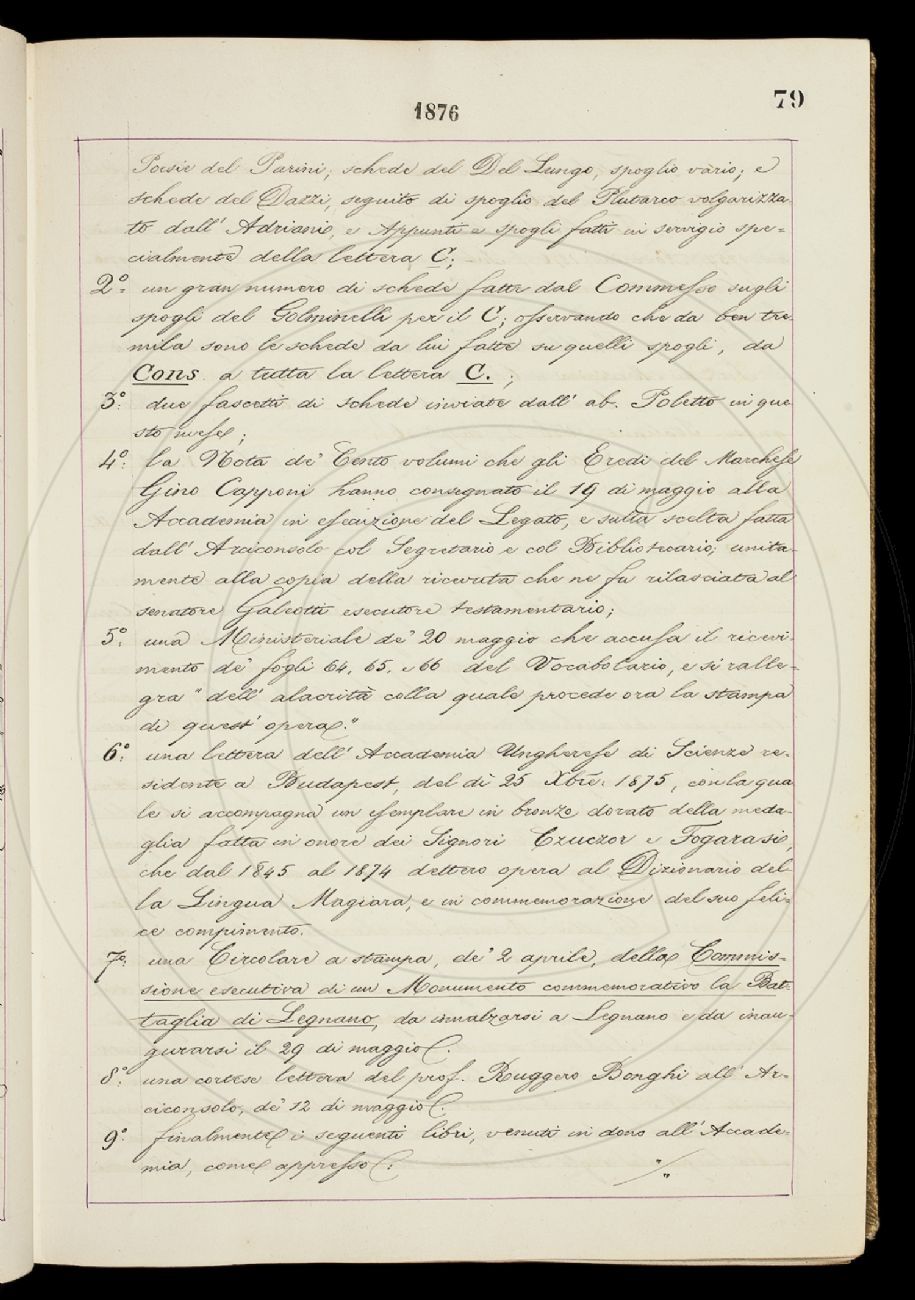 1876
79
Poesie del Parini; schede del Del Lungo, spoglio vario; e
schede del Dazzi, seguito di spoglio del Plutarco volgarizza-
to dall' Adriani, e Appunti e spogli fatti in servigio spe-
cialmente della lettera C;
2° un gran numero di schede fatte dal Commesso sugli
spogli del Golminelli per il C; osservando che da ben tre-
mila sono le schede da lui fatte su quelli spogli, da
Cons. a tutta la lettera C. ;
3° due fascetti di schede inviate dall' ab. Poletto in que-
sto mese;
4° la Nota de' Cento volumi che gli Eredi del Marchese
Gino Capponi hanno consegnato il 19 di maggio alla
Accademia in esecuzione del Legato, e sulla scelta fatta
dall' Arciconsolo col Segretario e col Bibliotecario; unita-
mente alla copia della ricevuta che ne fu rilasciata al
senatore Galeotti esecutore testamentario;
5° una Ministeriale de' 20 maggio che accusa il ricevi-
mento de' fogli 64, 65, e 66 del Vocabolario, e si ralle-
gra " dell' alacrità colla quale procede ora la stampa
di quest' opera."
6° una lettera dell' Accademia Ungherese di Scienze re-
sidente a Budapest, del dì 25 Xbre. 1875, con la qua
le si accompagna un esemplare in bronzo dorato della meda-
glia fatta in onore dei Signori Czuczor e Fogarasi,
che dal 1845 al 1874 dettero opera al Dizionario del-
la Lingua Magiara, e in commemorazione del suo feli-
ce compimento.
7° una Circolare a stampa, de' 2 aprile, della Commis-
sione esecutiva di un Monumento commemorativo la Bat-
taglia di Legnano, da innalzarsi a Legnano e da inau-
gurarsi il 29 di maggio.
8° una cortese lettera del prof. Ruggero Bonghi all' Ar-
ciconsolo, de' 12 di maggio.
9° finalmente i seguenti libri, venuti in dono all' Accade-
mia, come appresso: "/"